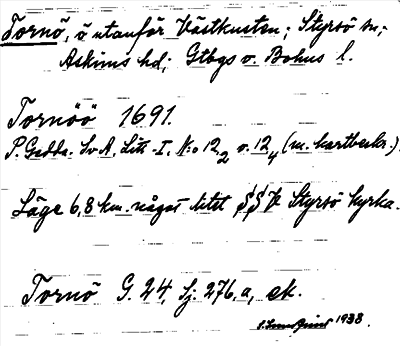 Tornö, ö utanför Västkusten; Styrsö sn;
Askims hd; Gtbgs o. Bohus l.
Tornöö 1691.
P. Gedda. Sv A, Litt. I. No 12 2 o. 12 4 (m. kartbeskr.).
Läge 6,8 km. något litet SSV Styrsö kyrka.
Tornö G. 24, Sj. 276, a, ek.
1938.